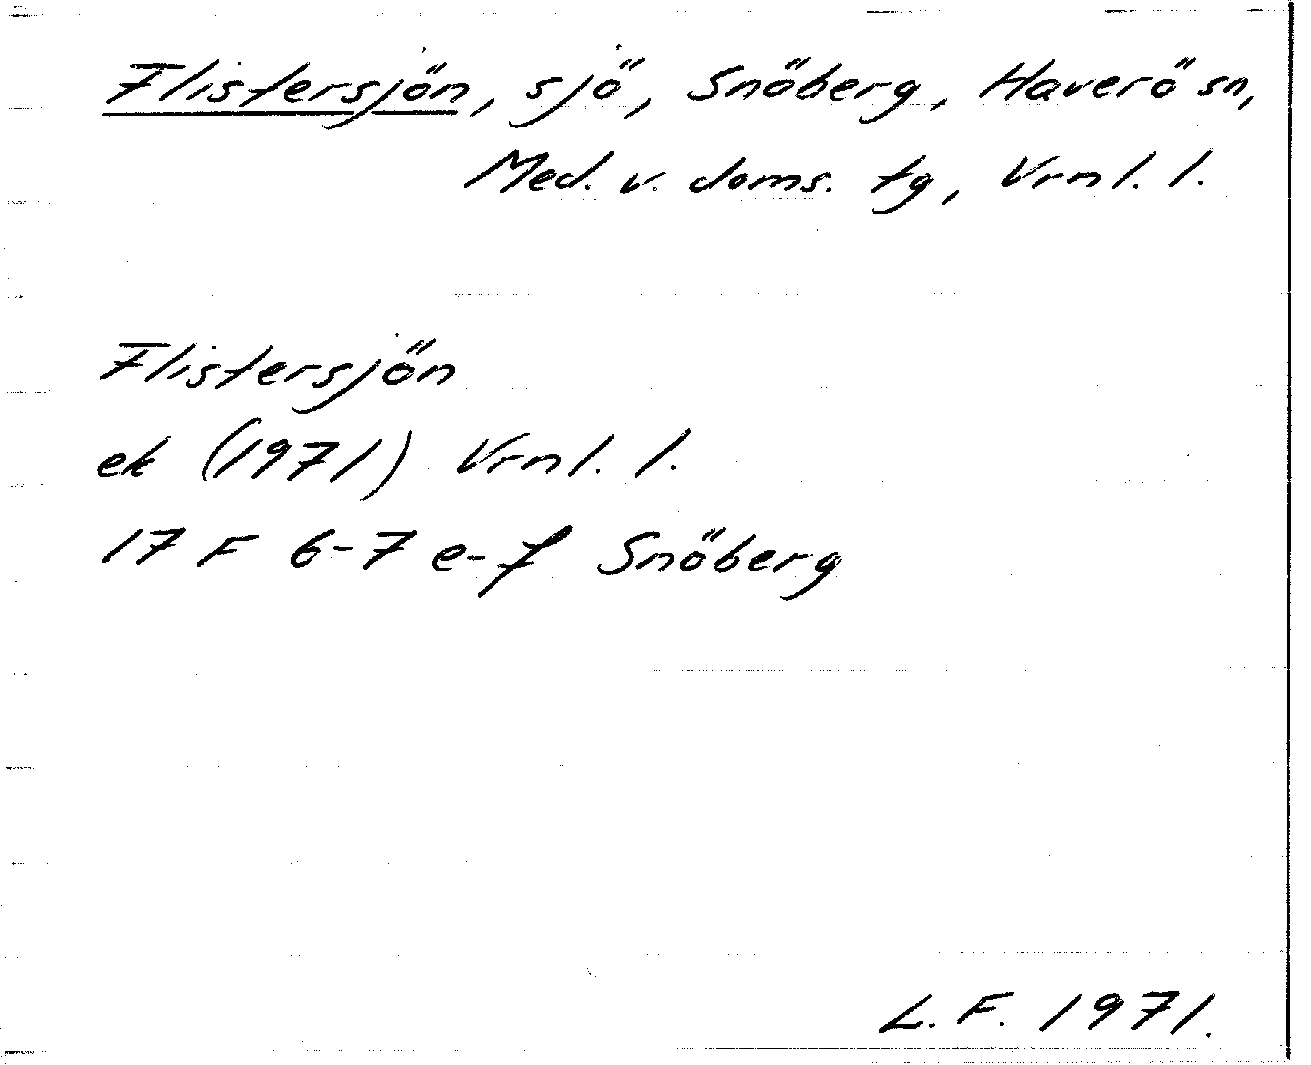 Flistersjön, sjö, Snöberg, Haverö sn,
Med. v. doms. tg, Vrnl. l.
Flistersjön
ek (1971) Vrnl. l.
17 F 6-7 e-f Snöberg
L. F. 1971.